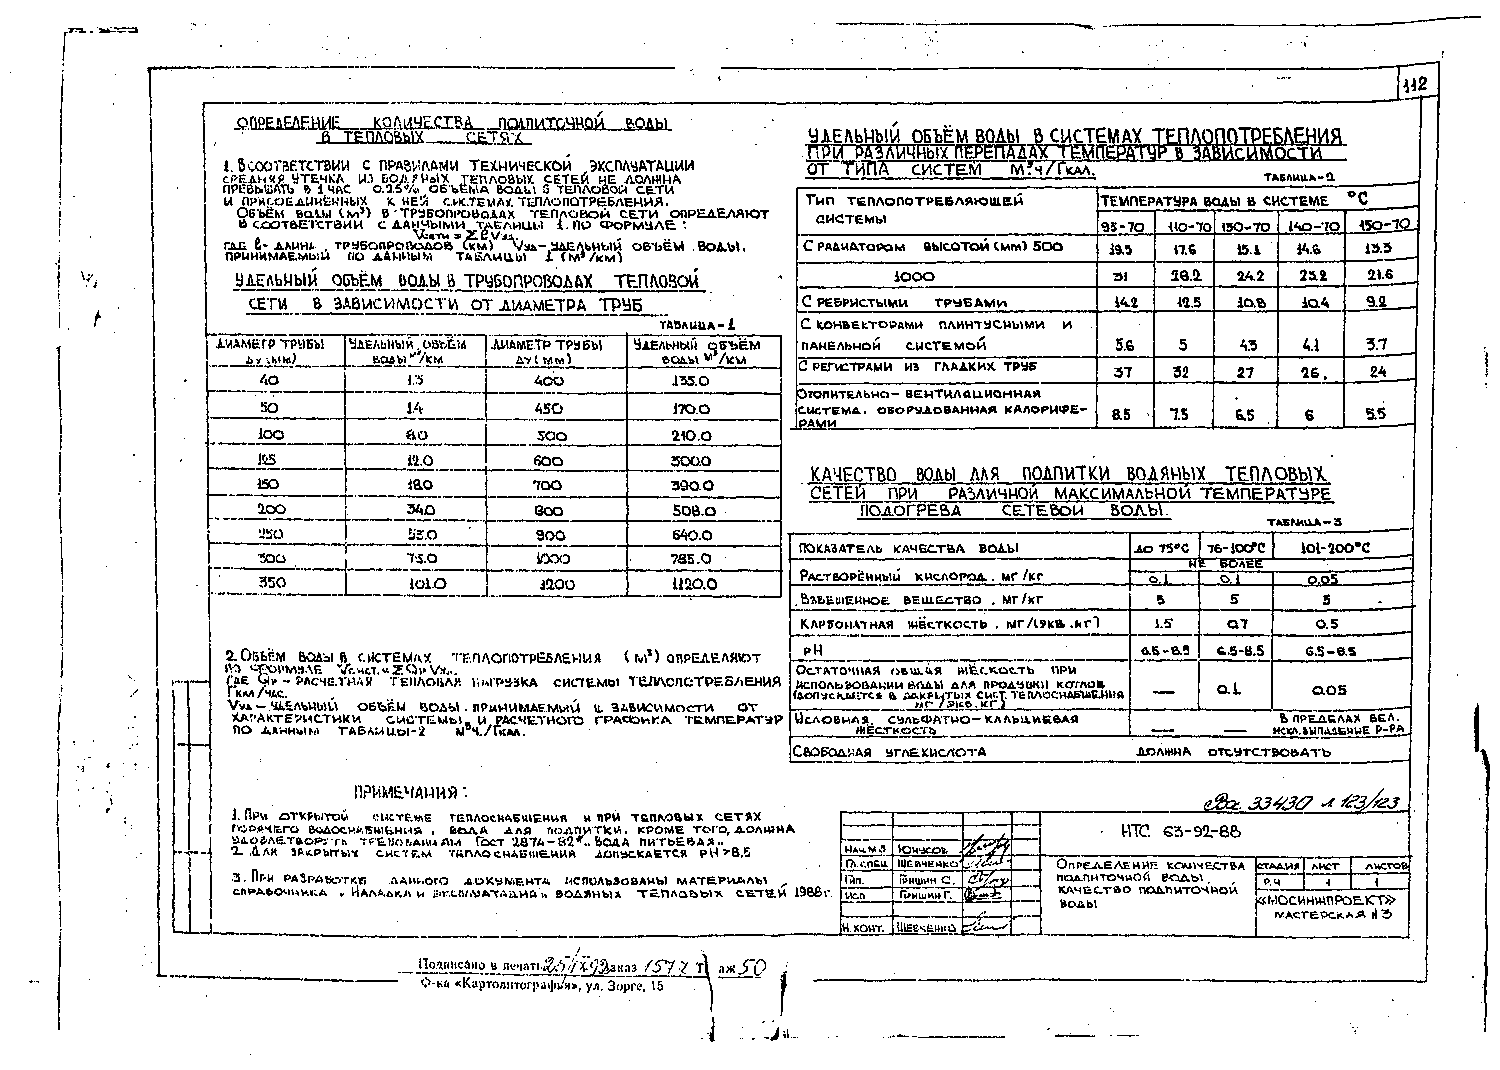 112
ОПРЕДЕЛЕНИЕ КОЛИЧЕСТВА ПОДПИТОЧНОЙ ВОДЫ
В ТЕПЛОВЫХ СЕТЯХ
1. В СООТВЕТСТВИИ С ПРАВИЛАМИ ТЕХНИЧЕСКОЙ ЭКСПЛУАТАЦИИ
СРЕДНЯЯ УТЕЧКА ИЗ ВОДЯНЫХ ТЕПЛОВЫХ СЕТЕЙ НЕ ДОЛЖНА
ПРЕВЫШАТЬ В 1 ЧАС 0.25% ОБЪЁМА ВОДЫ В ТЕПЛОВОЙ СЕТИ
И ПРИСОЕДИНЕННЫХ К НЕЙ СИСТЕМАХ ТЕПЛОПОТРЕБЛЕНИЯ.
ОБЪЁМ ВОДЫ (М³) В ТРУБОПРОВОДАХ ТЕПЛОВОЙ СЕТИ ОПРЕДЕЛЯЮТ
В СООТВЕТСТВИИ С ДАННЫМИ ТАБЛИЦЫ 1. ПО ФОРМУЛЕ:
Vсети = Σℓ Vуд.
ГДЕ ℓ- ДЛИНА ТРУБОПРОВОДОВ (КМ) Vуд-УДЕЛЬНЫЙ ОБЪЁМ ВОДЫ,
ПРИНИМАЕМЫЙ ПО ДАННЫМ ТАБЛИЦЫ 1 (М³/КМ)
УДЕЛЬНЫЙ ОБЪЁМ ВОДЫ В ТРУБОПРОВОДАХ ТЕПЛОВОЙ
СЕТИ В ЗАВИСИМОСТИ ОТ ДИАМЕТРА ТРУБ
ТАБЛИЦА-1
ДИАМЕТР ТРУБЫ УДЕЛЬНЫЙ ОБЪЁМ ДИАМЕТР ТРУБЫ УДЕЛЬНЫЙ ОБЪЁМ
ДУ (ММ) ВОДЫ М³/КМ ДУ (ММ) ВОДЫ М³/КМ
40 1.3 400 135.0
50 1.4 450 170.0
100 8.0 500 210.0
125 12.0 600 300.0
150 18.0 700 390.0
200 34.0 800 508.0
250 53.0 900 640.0
300 75.0 1000 785.0
350 101.0 1200 1120.0
2. ОБЪЁМ ВОДЫ В СИСТЕМАХ ТЕПЛОПОТРЕБЛЕНИЯ (М³) ОПРЕДЕЛЯЮТ
ПО ФОРМУЛЕ Vсист. = ΣQр Vуд.
ГДЕ Qр - РАСЧЕТНАЯ ТЕПЛОВАЯ НАГРУЗКА СИСТЕМЫ ТЕПЛОПОТРЕБЛЕНИЯ
ГКАЛ/ЧАС.
Vуд - УДЕЛЬНЫЙ ОБЪЁМ ВОДЫ. ПРИНИМАЕМЫЙ В ЗАВИСИМОСТИ ОТ
ХАРАКТЕРИСТИКИ СИСТЕМЫ И РАСЧЕТНОГО ГРАФИКА ТЕМПЕРАТУР
ПО ДАННЫМ ТАБЛИЦЫ-2 М³Ч./ГКАЛ.
ПРИМЕЧАНИЯ:
1. ПРИ ОТКРЫТОЙ СИСТЕМЕ ТЕПЛОСНАБЖЕНИЯ И ПРИ ТЕПЛОВЫХ СЕТЯХ
ГОРЯЧЕГО ВОДОСНАБЖЕНИЯ, ВОДА ДЛЯ ПОДПИТКИ, КРОМЕ ТОГО, ДОЛЖНА
УДОВЛЕТВОРЯТЬ ТРЕБОВАНИЯМ ГОСТ 2874-82* „ВОДА ПИТЬЕВАЯ„
2. ДЛЯ ЗАКРЫТЫХ СИСТЕМ ТЕПЛОСНАБЖЕНИЯ ДОПУСКАЕТСЯ PH>8,5
3. ПРИ РАЗРАБОТКЕ ДАННОГО ДОКУМЕНТА ИСПОЛЬЗОВАНЫ МАТЕРИАЛЫ
СПРАВОЧНИКА „НАЛАДКА И ЭКСПЛУАТАЦИЯ„ ВОДЯНЫХ ТЕПЛОВЫХ СЕТЕЙ 1988г.
УДЕЛЬНЫЙ ОБЪЁМ ВОДЫ В СИСТЕМАХ ТЕПЛОПОТРЕБЛЕНИЯ
ПРИ РАЗЛИЧНЫХ ПЕРЕПАДАХ ТЕМПЕРАТУР В ЗАВИСИМОСТИ
ОТ ТИПА СИСТЕМ М³Ч/ГКАЛ.
ТАБЛИЦА-2
ТИП ТЕПЛОПОТРЕБЛЯЮЩЕЙ ТЕМПЕРАТУРА ВОДЫ В СИСТЕМЕ °С
СИСТЕМЫ 95-70 110-70 130-70 140-70 150-70
С РАДИАТОРОМ ВЫСОТОЙ (ММ) 500 19.5 17.6 15.1 14.6 13.3
1000 31 28.2 24.2 23.2 21.6
С РЕБРИСТЫМИ ТРУБАМИ 14.2 12.5 10.8 10.4 9.2
С КОНВЕКТОРАМИ ПЛИНТУСНЫМИ И
ПАНЕЛЬНОЙ СИСТЕМОЙ 5.6 5 4.3 4.1 3.7
С РЕГИСТРАМИ ИЗ ГЛАДКИХ ТРУБ 37 32 27 26. 24
ОТОПИТЕЛЬНО-ВЕНТИЛАЦИОННАЯ
СИСТЕМА, ОБОРУДОВАННАЯ КАЛОРИФЕ- 8.5 7.5 6.5 6 5.5
РАМИ
КАЧЕСТВО ВОДЫ ДЛЯ ПОДПИТКИ ВОДЯНЫХ ТЕПЛОВЫХ
СЕТЕЙ ПРИ РАЗЛИЧНОЙ МАКСИМАЛЬНОЙ ТЕМПЕРАТУРЕ
ПОДОГРЕВА СЕТЕВОЙ ВОДЫ.
ТАБЛИЦА-3
ПОКАЗАТЕЛЬ КАЧЕСТВА ВОДЫ ДО 75°С 76-100°С 101-200°С
НЕ БОЛЕЕ
РАСТВОРЁННЫЙ КИСЛОРОД, МГ/КГ 0.1 0.1 0.05
ВЗВЕШЕННОЕ ВЕЩЕСТВО, МГ/КГ 5 5 5
КАРБОНАТНАЯ ЖЁСТКОСТЬ, МГ/(ЭКВ.КГ) 1.5 0.7 0.5
PH 6.5-8.5 6.5-8.5 6.5-8.5
ОСТАТОЧНАЯ ОБЩАЯ ЖЁСКОСТЬ ПРИ
ИСПОЛЬЗОВАНИИ ВОДЫ ДЛЯ ПРОДУВКИ КОТЛОВ — 0.1 0.05
(ДОПУСКАЕТСЯ В ЗАКРЫТЫХ СИСТ. ТЕПЛОСНАБЖЕНИЯ
МГ/ЭКВ.КГ.)
УСЛОВНАЯ, СУЛЬФАТНО-КАЛЬЦИЕВАЯ В ПРЕДЕЛАХ ВЕЛ.
ЖЁСТКОСТЬ — — ИСКЛ. ВЫПАДЕНИЕ Р-РА
СВОБОДНАЯ УГЛЕКИСЛОТА ДОЛЖНА ОТСУТСТВОВАТЬ
33430 л 123/123
НАЧ.М.3 ЮНУСОВ
ГЛ.СПЕЦ. ШЕВЧЕНКО
ГИП. ГРИШИН С.
ИСП ГРИШИН Г.
Н.КОНТ. ШЕВЧЕНКО
НТС 63-92-88
ОПРЕДЕЛЕНИЕ КОЛИЧЕСТВА
ПОДПИТОЧНОЙ ВОДЫ.
КАЧЕСТВО ПОДПИТОЧНОЙ
ВОДЫ
СТАДИЯ ЛИСТ ЛИСТОВ
Р.Ч 1 1
«МОСИНЖПРОЕКТ»
МАСТЕРСКАЯ N3
Подписано в печать 25/IX 92 заказ 1577 Тираж 50
Ф-ка «Картолитография», ул. Зорге, 15